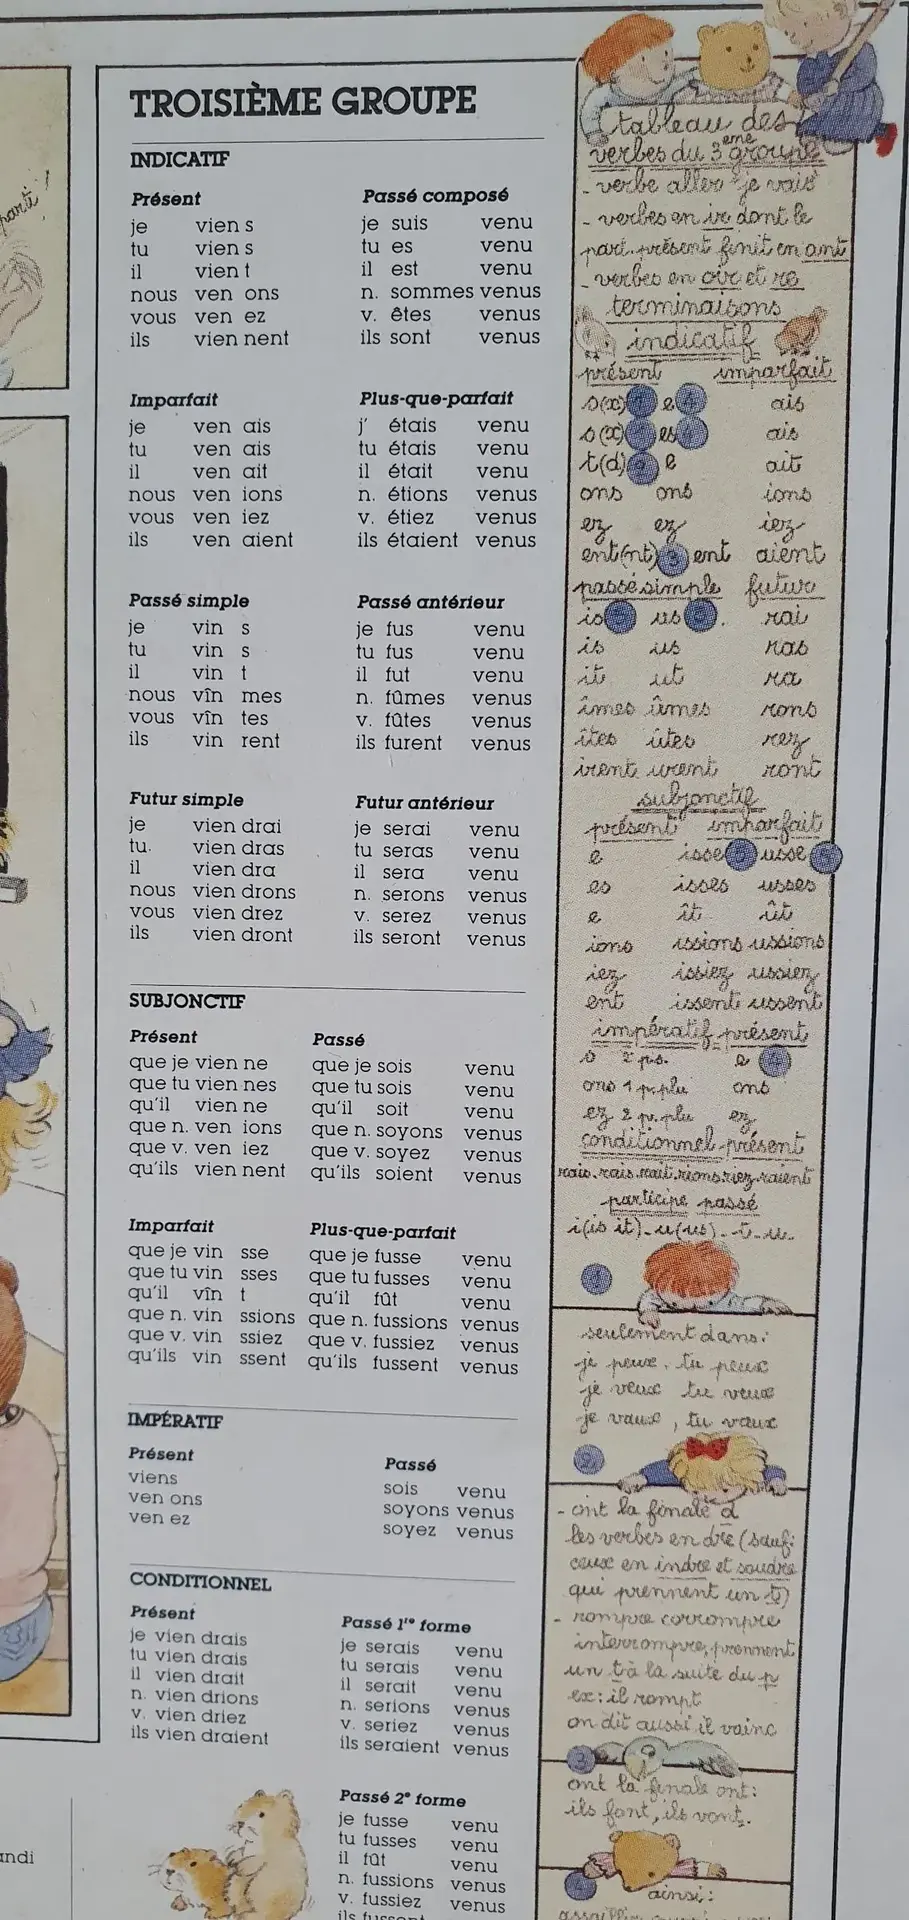 parti!
TROISIÈME GROUPE
INDICATIF
Présent
je vien s
tu vien s
il vien t
nous ven ons
vous ven ez
ils vien nent
Passé composé
je suis venu
tu es venu
il est venu
n. sommes venus
v. êtes venus
ils sont venus
Imparfait
je ven ais
tu ven ais
il ven ait
nous ven ions
vous ven iez
ils ven aient
Plus-que-parfait
j' étais venu
tu étais venu
il était venu
n. étions venus
v. étiez venus
ils étaient venus
Passé simple
je vin s
tu vin s
il vin t
nous vîn mes
vous vîn tes
ils vin rent
Passé antérieur
je fus venu
tu fus venu
il fut venu
n. fûmes venus
v. fûtes venus
ils furent venus
Futur simple
je vien drai
tu. vien dras
il vien dra
nous vien drons
vous vien drez
ils vien dront
Futur antérieur
je serai venu
tu seras venu
il sera venu
n. serons venus
v. serez venus
ils seront venus
SUBJONCTIF
Présent
que je vien ne
que tu vien nes
qu'il vien ne
que n. ven ions
que v. ven iez
qu'ils vien nent
Passé
que je sois venu
que tu sois venu
qu'il soit venu
que n. soyons venus
que v. soyez venus
qu'ils soient venus
Imparfait
que je vin sse
que tu vin sses
qu'il vîn t
que n. vin ssions
que v. vin ssiez
qu'ils vin ssent
Plus-que-parfait
que je fusse venu
que tu fusses venu
qu'il fût venu
que n. fussions venus
que v. fussiez venus
qu'ils fussent venus
IMPÉRATIF
Présent
viens
ven ons
ven ez
Passé
sois venu
soyons venus
soyez venus
CONDITIONNEL
Présent
je vien drais
tu vien drais
il vien drait
n. vien drions
v. vien driez
ils vien draient
Passé 1re forme
je serais venu
tu serais venu
il serait venu
n. serions venus
v. seriez venus
ils seraient venus
Passé 2e forme
je fusse venu
tu fusses venu
il fût venu
n. fussions venus
v. fussiez venus
ils fussent
tableau des
verbes du 3eme groupe
- verbe aller "je vais"
- verbes en ir dont le
part. présent finit en ant
- verbes en oir et re
terminaisons
indicatif
présent imparfait
s(x) 1 e 4 ais
s(x) 1 es 4 ais
t(d) 2 e ait
ons ons ions
ez ez iez
ent(nt) 3 ent aient
passé simple futur
is us rai
is us ras
it ut ra
îmes ûmes rons
îtes ûtes rez
irent urent ront
subjonctif
présent imparfait
e isse usse
es isses usses
e ît ût
ions issions ussions
iez issiez ussiez
ent issent ussent
impératif présent
s 2 p.s. e 4
ons 1 p. plu ons
ez 2 p. plu ez
conditionnel présent
rais. rais. rait. rions. riez. raient
participe passé
i(is it)_u(us)_t_u_
1
seulement dans:
je peux, tu peux
je veux tu veux
je vaux, tu vaux
2
- ont la finale d
les verbes en dre (sauf:
ceux en indre et soudre
qui prennent un t)
- rompre corrompre
interrompre, prennent
un t à la suite du p
ex: il rompt
on dit aussi il vainc
3
ont la finale ont:
ils font, ils vont.
4
ainsi: